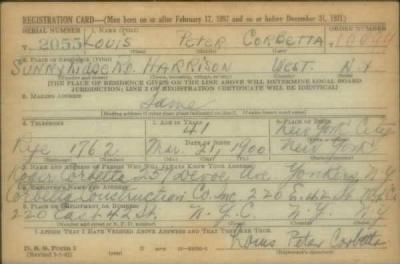 REGISTRATION CARD—(Men born on or after February 17, 1897 and on or before December 31, 1921)
SERIAL NUMBER 1. NAME (Print) ORDER NUMBER
U 2055 LOUIS PETER CORBETTA 10044
(First) (Middle) (Last)
2. PLACE OF RESIDENCE (Print)
SUNNYRIDGE RD. HARRISON WEST. N.Y
(Number and street) (Town, township, village, or city) (County) (State)
[THE PLACE OF RESIDENCE GIVEN ON THE LINE ABOVE WILL DETERMINE LOCAL BOARD
JURISDICTION; LINE 2 OF REGISTRATION CERTIFICATE WILL BE IDENTICAL]
3. MAILING ADDRESS
Same
[Mailing address if other than place indicated on line 2. If same insert word same]
4. TELEPHONE 5. AGE IN YEARS 6. PLACE OF BIRTH
41 New York City
DATE OF BIRTH
Rye 1762 Mar. 21, 1900 New York
7. NAME AND ADDRESS OF PERSON WHO WILL ALWAYS KNOW YOUR ADDRESS
Roger Corbetta 257 Devoe Ave. Yonkers, N.Y.
8. EMPLOYER'S NAME AND ADDRESS
Corbetta Construction Co. Inc. 220 E. 42 St. N.Y.C.
9. PLACE OF EMPLOYMENT OR BUSINESS
220 East 42 St. N.Y.C. N.Y. N.Y
(Number and street or R. F. D. number) (Town) (County) (State)
I AFFIRM THAT I HAVE VERIFIED ABOVE ANSWERS AND THAT THEY ARE TRUE.
Louis Peter Corbetta
D. S. S. Form 1
(Registrant's signature)